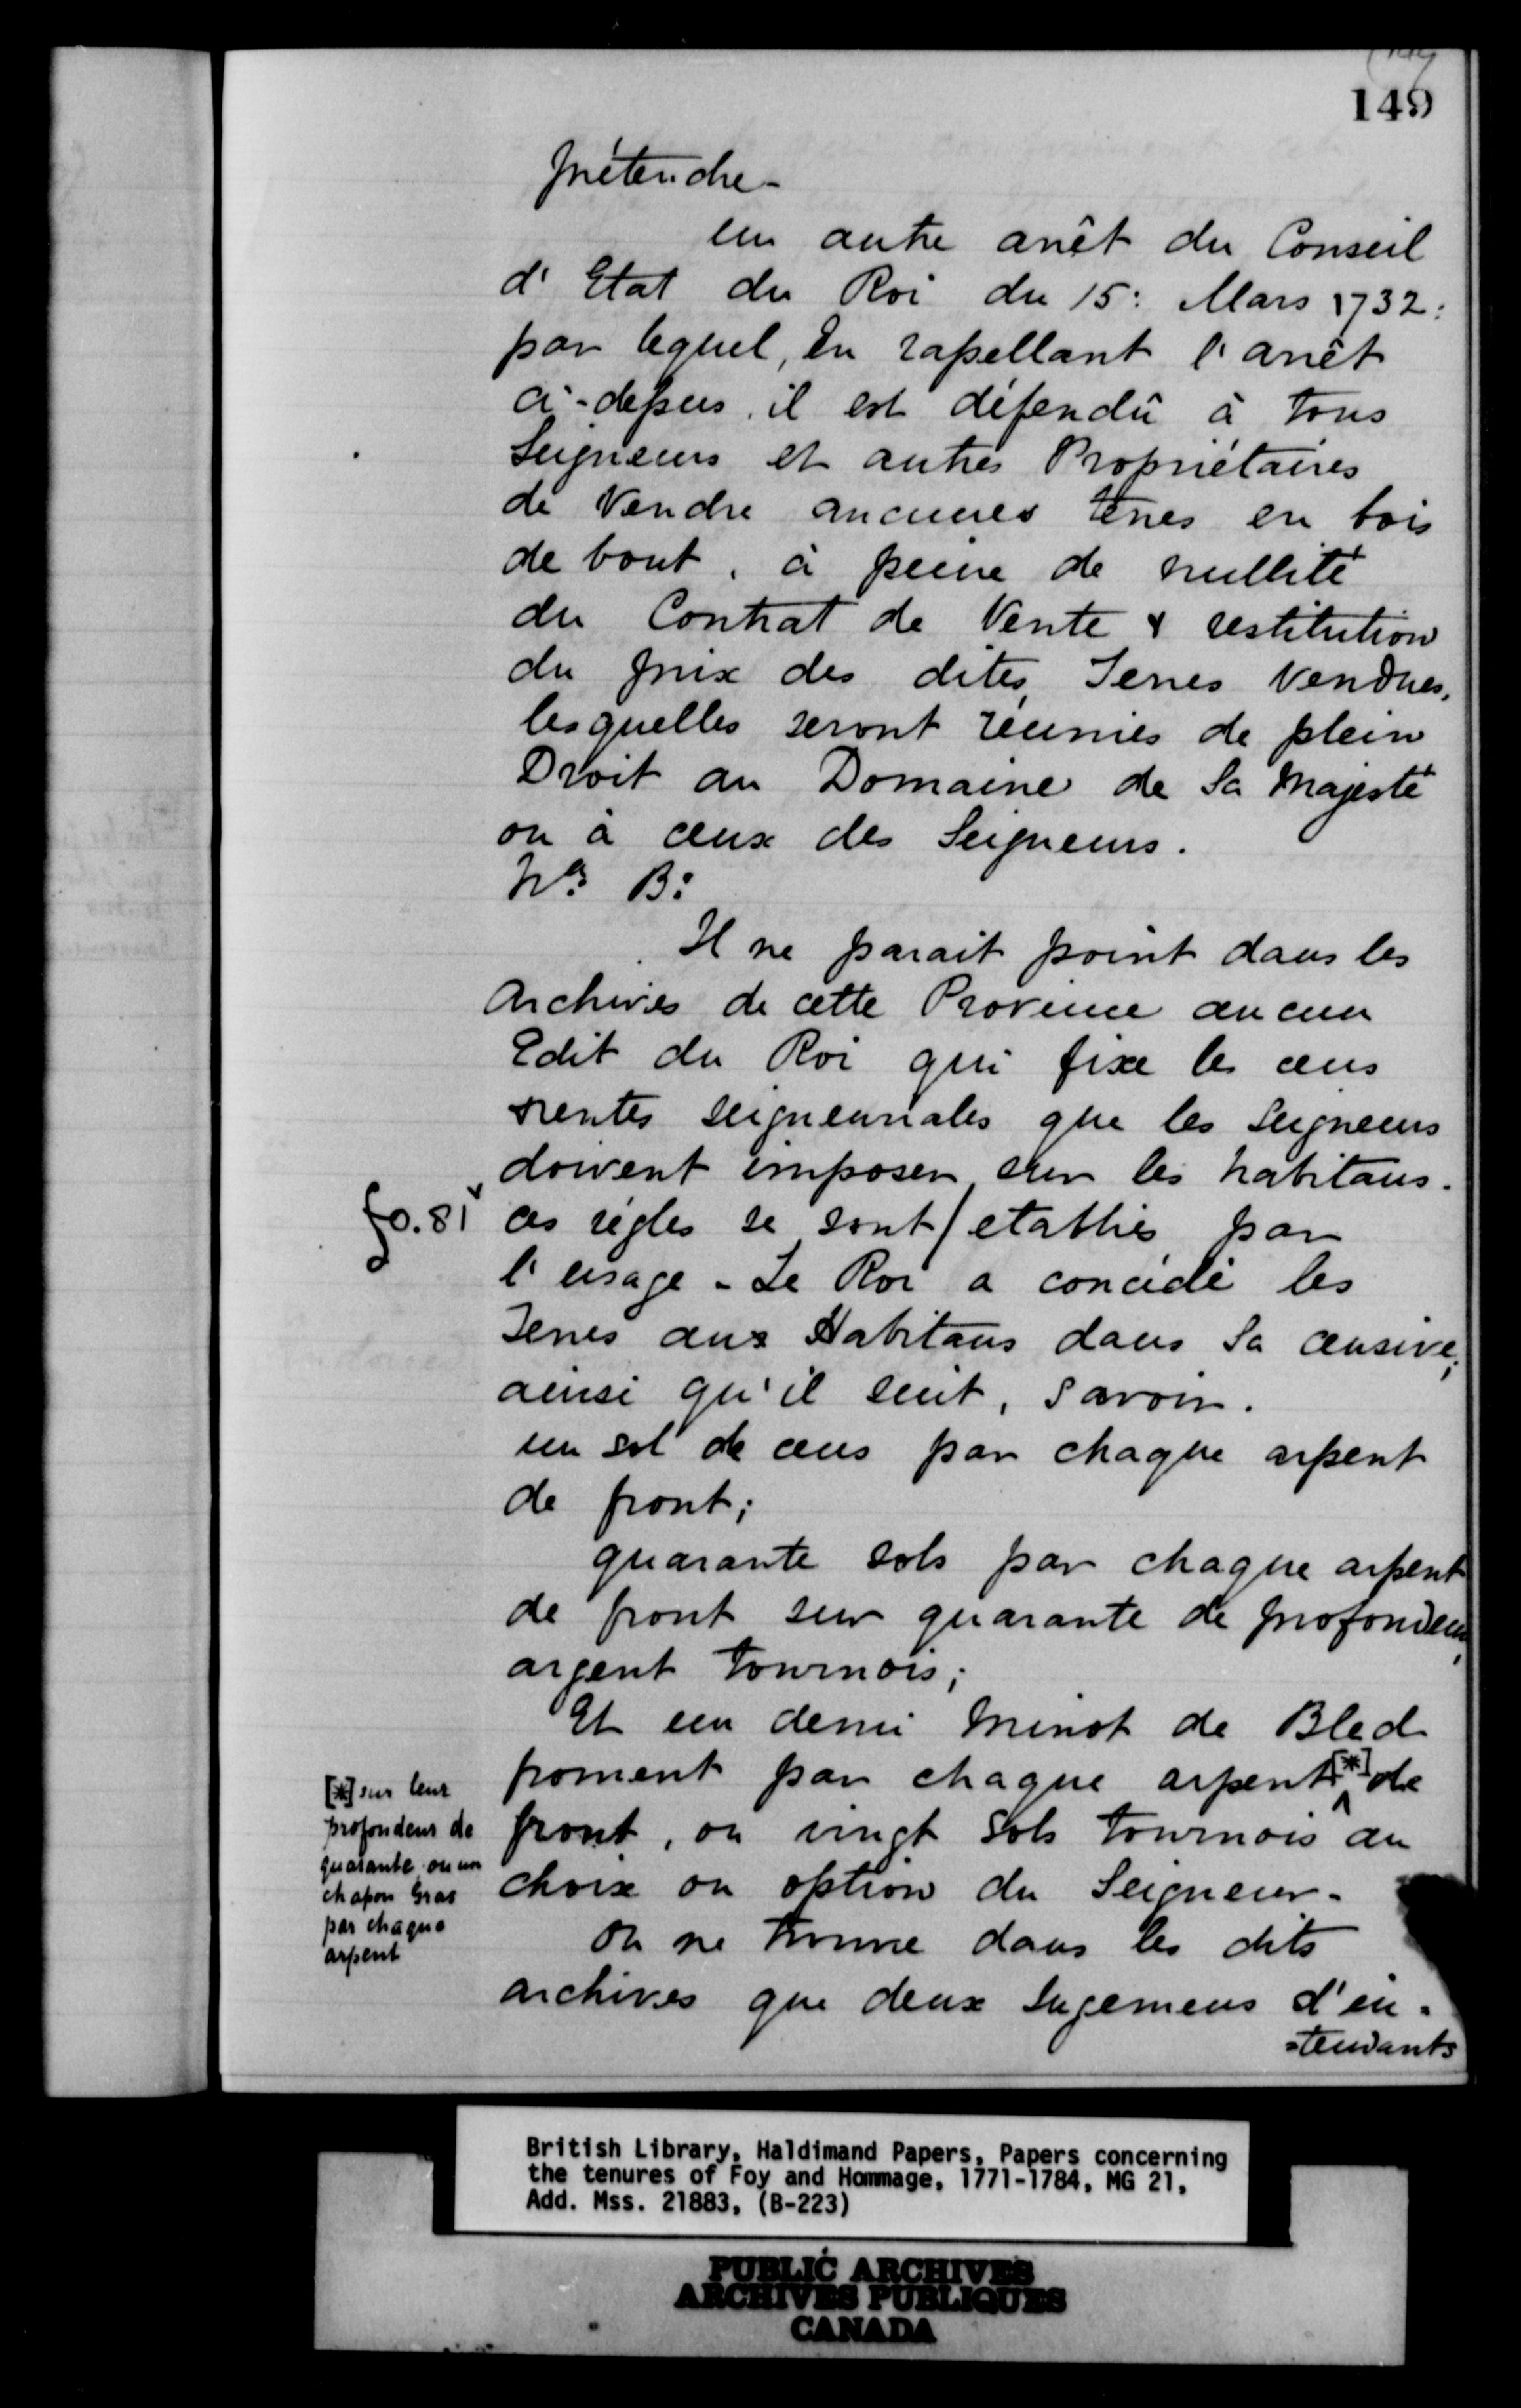 149
prétendre -
un autre arrêt du Conseil
d'Etat du Roi du 15: Mars 1732:
par lequel, En rapellant l'arrêt
ci-dessus, il est défendû à tous
Seigneurs et autres Propriétaires
de Vendre aucunes terres en bois
de bout, à peine de nullité
du Contrat de Vente & restitution
du prix des dites Terres Vendues,
lesquelles seront réunies de plein
Droit au Domaine de Sa Majesté
ou à ceux des Seigneurs.
Na B:
Il ne parait point dans les
Archives de cette Province aucun
Edit du Roi qui fixe les cens
rentes seigneuriales que les Seigneurs
doivent imposer sur les habitans.
fo. 81 ces régles se sont/etablies par
l'usage - Le Roi a concédé les
Terres aux Habitans dans Sa censive,
ainsi qu'il suit, Savoir.
un sol de cens par chaque arpent
de front;
quarante sols par chaque arpent
de front sur quarante de profondeur,
argent tournois;
Et un demi Minot de Bled
froment par chaque arpent [*] de
front, ou vingt Sols tournois au
choix ou option du Seigneur -
On ne trouve dans les dits
archives que deux Jugemens d'in-
-tendants
[*] sur leur
profondeur de
quarante ou un
chapon Gras
par chaque
arpent
British Library, Haldimand Papers, Papers concerning
the tenures of Foy and Hommage, 1771-1784, MG 21,
Add. Mss. 21883, (B-223)
PUBLIC ARCHIVES
ARCHIVES PUBLIQUES
CANADA